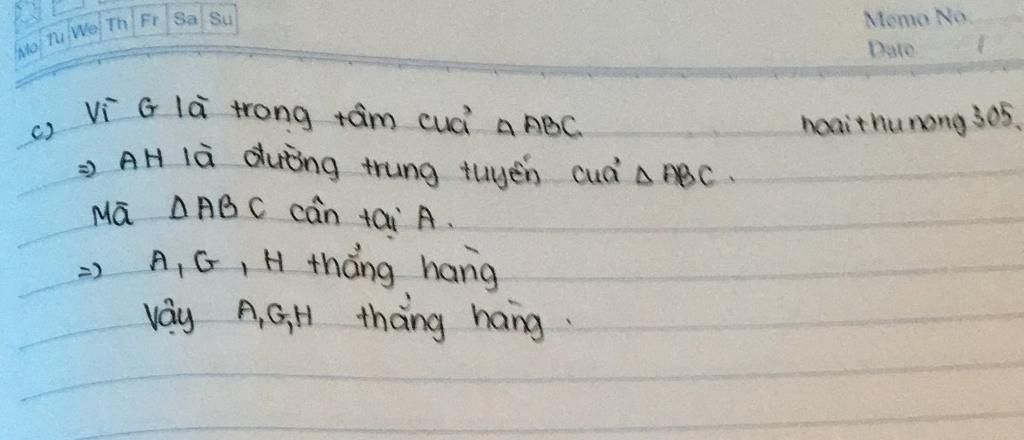 Mo Tu We Th Fr Sa Su
Memo No.
Date /
c) Vì G là trọng tâm của Δ ABC.
hoaithunong305.
=> AH là đường trung tuyến của Δ ABC.
Mà Δ ABC cân tại A.
=> A, G, H thẳng hàng
Vậy A, G, H thẳng hàng.